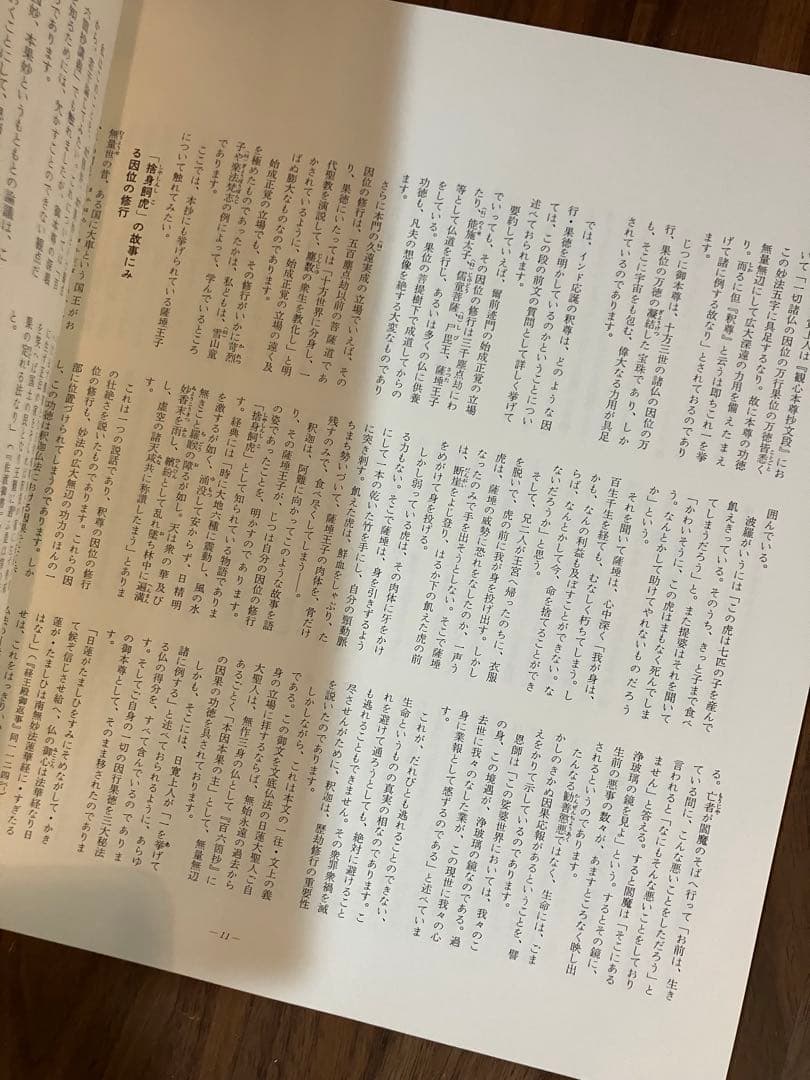 上人は『観心本尊抄文段』にお
いて「一切諸仏の因位の万行果位の万徳皆悉く
この妙法五字に具足するなり。故に本尊の功徳
無量無辺にして広大深遠の力用を備えたまえ
り。而るに但『釈尊』と云うは即ちこれ一を挙
げて諸に例する故なり」とされておるのであり
ます。
じつに御本尊は、十方三世の諸仏の因位の万
行、果位の万徳の凝結した宝珠であり、しか
も、そこに宇宙をも包む、偉大なる力用が具足
されているのであります。
では、インド応誕の釈尊は、どのような因
行・果徳を明かしているのかということについ
ては、この段の前文の質問として詳しく挙げて
述べておられます。
要約していえば、爾前迹門の始成正覚の立場
でいっても、その因位の修行は三千塵点劫にわ
たり、能施太子、儒童菩薩、尸毘王、薩埵王子
等として仏道を行じ、あるいは多くの仏に供養
をしている。果位の菩提樹下で成道してからの
功徳も、凡夫の想像を絶する大変なものであり
ます。
さらに本門の久遠実成の立場でいえば、その
因位の修行は、五百塵点劫以前の菩薩道であ
り、果徳にいたっては「十方世界に分身し、一
代聖教を演説して、塵数の衆生を教化し」と明
かされているように、始成正覚の立場の遠く及
ばぬ膨大なものなのであります。
始成正覚の立場でも、その修行がいかに苛烈
を極めたものであったかは、私どもは、雪山童
子や楽法梵志の例によって、学んでいるところ
であります。
ここでは、本抄にも挙げられている薩埵王子
について触れてみたい。
「捨身飼虎」の故事にみ
る因位の修行
無量世の昔、ある国に大車という国王がお
囲んでいる。
波羅がいうには「この虎は七匹の子を産んで
飢えきっている。そのうち、きっと子まで食べ
てしまうだろう」と。また提婆はそれを聞いて
「かわいそうに、この虎はまもなく死んでしま
う。なんとかして助けてやれないものだろう
か」という。
それを聞いて薩埵は、心中深く「我が身は、
百生千生を経ても、むなしく朽ちてしまう。し
かも、なんの利益も及ぼすことができない。な
らば、なんとかして今、命を捨てることができ
ないだろうか」と思う。
そして、兄二人が王宮へ帰ったのちに、衣服
を脱いで、虎の前に我が身を投げ出す。しかし
虎は、薩埵の威勢に恐れをなしたのか、一声う
なったのみで手を出そうとしない。そこで薩埵
は、断崖をよじ登り、はるか下の飢えた虎の前
をめがけて身を投げる。
しかし弱っている虎は、その肉体に牙をかけ
る力もない。そこで薩埵は、身を引きずるよう
にして一本の乾いた竹を手にし、自分の頸動脈
に突き刺す。飢えた虎は、鮮血をしゃぶり、た
ちまち勢いづいて、薩埵王子の肉体を、骨だけ
残すのみで、食べ尽くしてしまう――。
釈迦は、阿難に向かってこのような故事を語
り、その薩埵王子が、じつは自分の因位の修行
の姿であったことを、明かすのであります。
「捨身飼虎」として知られている物語でありま
す。経典には「時に大地六種に震動し、風の水
を激するが如く、涌没して安からず、日精明
無きこと羅睺の障るが如し。天は衆の華及び
妙香末を雨し、繽紛として乱れ墜ち林中に遍満
し、虚空の諸天咸共に称讃したまう」とありま
す。
これは一つの説話であり、釈尊の因位の修行
の壮絶さを説いたものであります。これらの因
位の修行も、妙法の広大無辺の功力のほんの一
部に位置づけられてしまうのであります。しか
る。亡者が閻魔のそばへ行って「お前は、生き
ている間に、こんな悪いことをしただろう」と
言われると「なにもそんな悪いことをしており
ません」と答える。すると閻魔は「そこにある
浄玻璃の鏡を見よ」という。するとその鏡に、
生前の悪事の数々が、あますところなく映し出
されるというのであります。
たんなる勧善懲悪ではなく、生命には、ごま
かしのきかぬ因果応報があるということを、譬
えをかりて示しているのであります。
恩師は「この娑婆世界においては、我々のこ
の身、この境遇が、浄玻璃の鏡なのである。過
去世に我々のなした業が、この現世に我々の心
身に業報として感ずるのである」と述べていま
す。
これが、だれびとも逃れることのできない、
生命というものの真実の相なのであります。こ
れを避けて通ろうとしても、絶対に避けること
も逃れることもできません。その衆罪衆禍を滅
尽させんがために、釈迦は、歴劫修行の重要性
を説いたのであります。
しかしながら、これは本文の一往、文上の義
である。この御文を文底仏法の日蓮大聖人ご自
身の立場に拝するならば、無始永遠の過去から
大聖人は、無作三身の仏として『百六箇抄』に
あるごとく「本因本果の主」として、無量無辺
の因果の功徳を具されております。
しかも、そこには、日寛上人が「一を挙げて
諸に例する」と述べておられるように、あらゆ
る仏の得分を、すべて含んでいるのでありま
す。そしてご自身の一切の因行果徳を三大秘法
の御本尊として、そのまま移されたのでありま
す。
「日蓮がたましひをすみにそめながして・かき
て候ぞ信じさせ給へ、仏の御心は法華経なり日
蓮が・たましひは南無妙法蓮華経に・すぎたる
はなし」（『経王殿御返事』同、一一二四㌻）
—11—